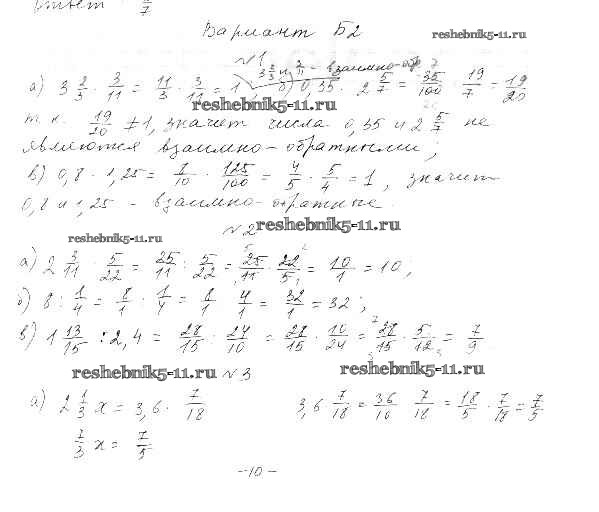 Ответ: 2/7
Вариант Б2
reshebnik5-11.ru
№1
3 2/3 и 3/11 - взаимно-обр.
а) 3 2/3 · 3/11 = 11/3 · 3/11 = 1, б) 0,35 · 2 5/7 = 35/100 · 19/7 = 19/20
reshebnik5-11.ru
т.к. 19/20 ≠ 1, значит числа 0,35 и 2 5/7 не
являются взаимно-обратными;
в) 0,8 · 1,25 = 8/10 · 125/100 = 4/5 · 5/4 = 1, значит
0,8 и 1,25 - взаимно-обратные.
reshebnik5-11.ru
№2
reshebnik5-11.ru
а) 2 3/11 : 5/22 = 25/11 : 5/22 = 25/11 · 22/5 = 10/1 = 10;
б) 8 : 1/4 = 8/1 : 1/4 = 8/1 · 4/1 = 32/1 = 32;
в) 1 13/15 : 2,4 = 28/15 : 24/10 = 28/15 · 10/24 = 28/15 · 5/12 = 7/9
reshebnik5-11.ru №3 reshebnik5-11.ru
а) 2 1/3 x = 3,6 · 7/18 3,6 · 7/18 = 36/10 · 7/18 = 18/5 · 7/18 = 7/5
7/3 x = 7/5
-10-